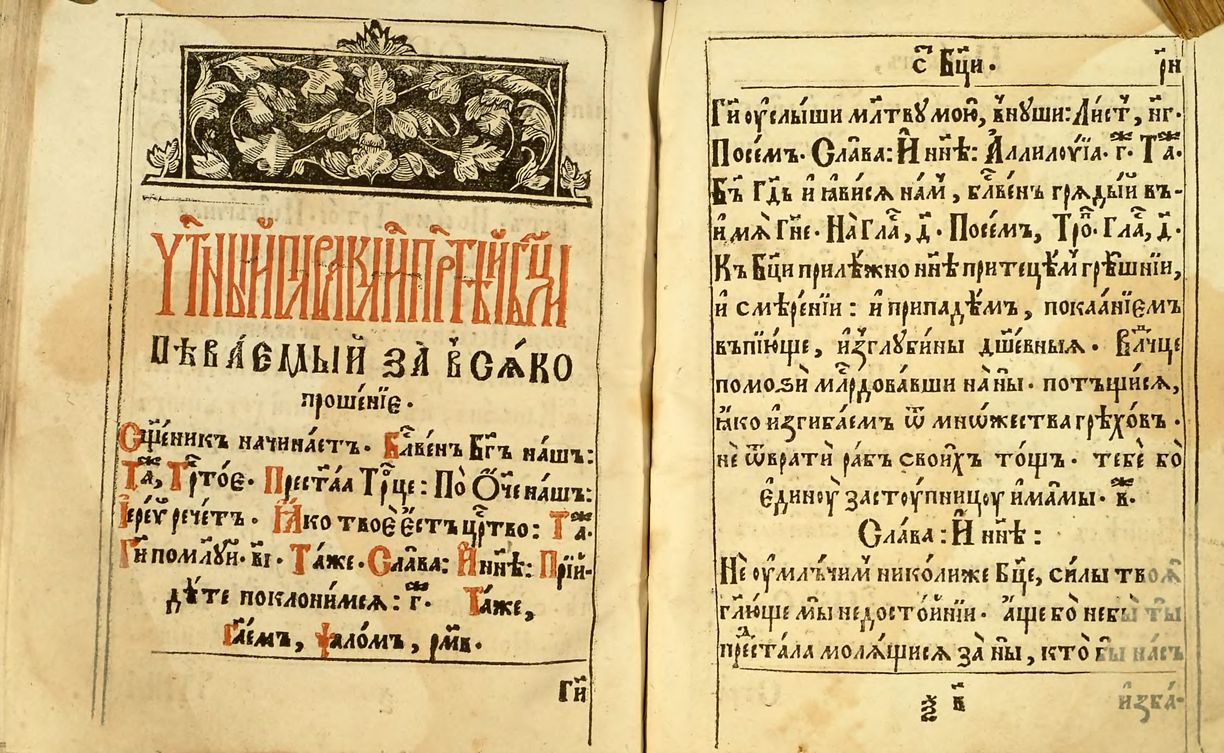 пѣва́емый за̀ всѧ́ко
проше́нїе.
Сщ҃е́никъ начина́етъ. Бл҃ве́нъ Бг҃ъ на́шъ:
Та́ж, Трⷭ҇то́е. Прест҃а́ѧ Трⷪ҇це: По̀ Ѻ҆́ч҃е на́шъ:
Іере́ѵ рече́тъ. Ꙗ҆́ко твоѐ е҆́стъ црⷭ҇тво: Та́ж.
Гй҃ поми́лꙋй. в҃і. Та́же. Сла́ва: И҆ нн҃ѣ: Прїй-
дѣ́те поклони́мсѧ: г҃ж. Та́же,
Гл҃а́емъ, ѱало́мъ, рм҃в.
Гй҃
с҃ Бц҃и.
рн
Гй҃ ᲂу҆слы́ши мл҃твꙋ мою̀, в̾нꙋши: Ли́ст, н҃г.
Посе́мъ. Сла́ва: И҆ нн҃ѣ: А҆ллилꙋ́їа. г҃ж. Та́ж.
Бг҃ъ Гдⷭ҇ь и҆ ꙗ҆ви́сѧ на́м, бл҃ве́нъ грѧды́й въ-
и҆́мѧ Гн҃е. На̀ Гла́с, д҃. Посе́мъ, Тро́п. Гла́с, д҃.
Къ Бц҃и приле́жно нн҃ѣ притеце́м грѣ́шнїи,
и҆ смѣре́нїи: и҆ припадѣ́мъ, покаѧ́нїемъ
въпїю́ще, и҆з̾глꙋбины̀ дш҃е́вныѧ. Влⷣчце
помозѝ млⷭ҇рдова́вши на̀ ны̀. потъщи́сѧ,
ꙗ҆́ко и҆згиба́емъ ѿ мно́жества грѣхо́въ.
нѐ ѿвратѝ ра́бъ свои́хъ то́щъ. тебѐ бо̀
є҆ди́нꙋ застꙋ́пницꙋ и҆́мамы. в҃ж.
Сла́ва: И҆ нн҃ѣ:
Нѐ ᲂу҆мл́ъчим никоди́же Бц҃е, си́лы твоѧ̀
гл҃юще мы̀ недосто́йнїи. а҆́ще бо̀ небы̀ ты̀
пре́дстала молѧ́щисѧ за̀ ны̀, кто̀ бы насъ
в҃
и҆зба́-